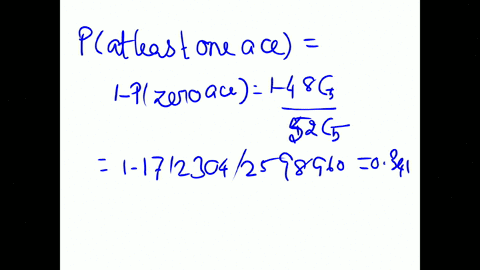 P(at least one ace) =
1-P(zero ace) = 1-48C5
52C5
= 1-1712304/2598960 = 0.341